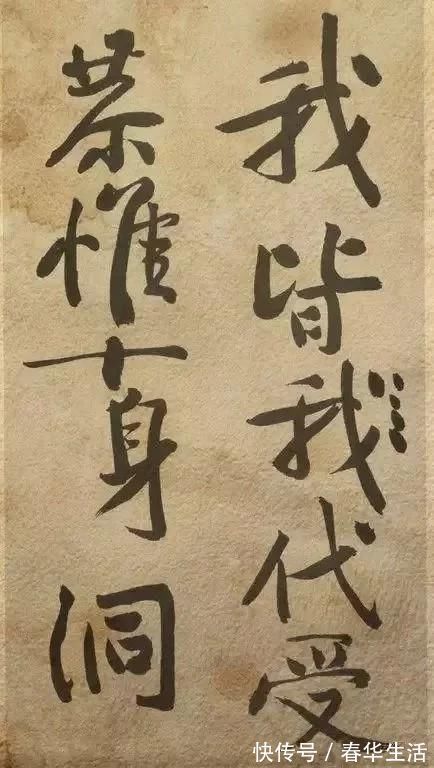 我皆我代受
恭惟十身洞
快传号 / 春华生活